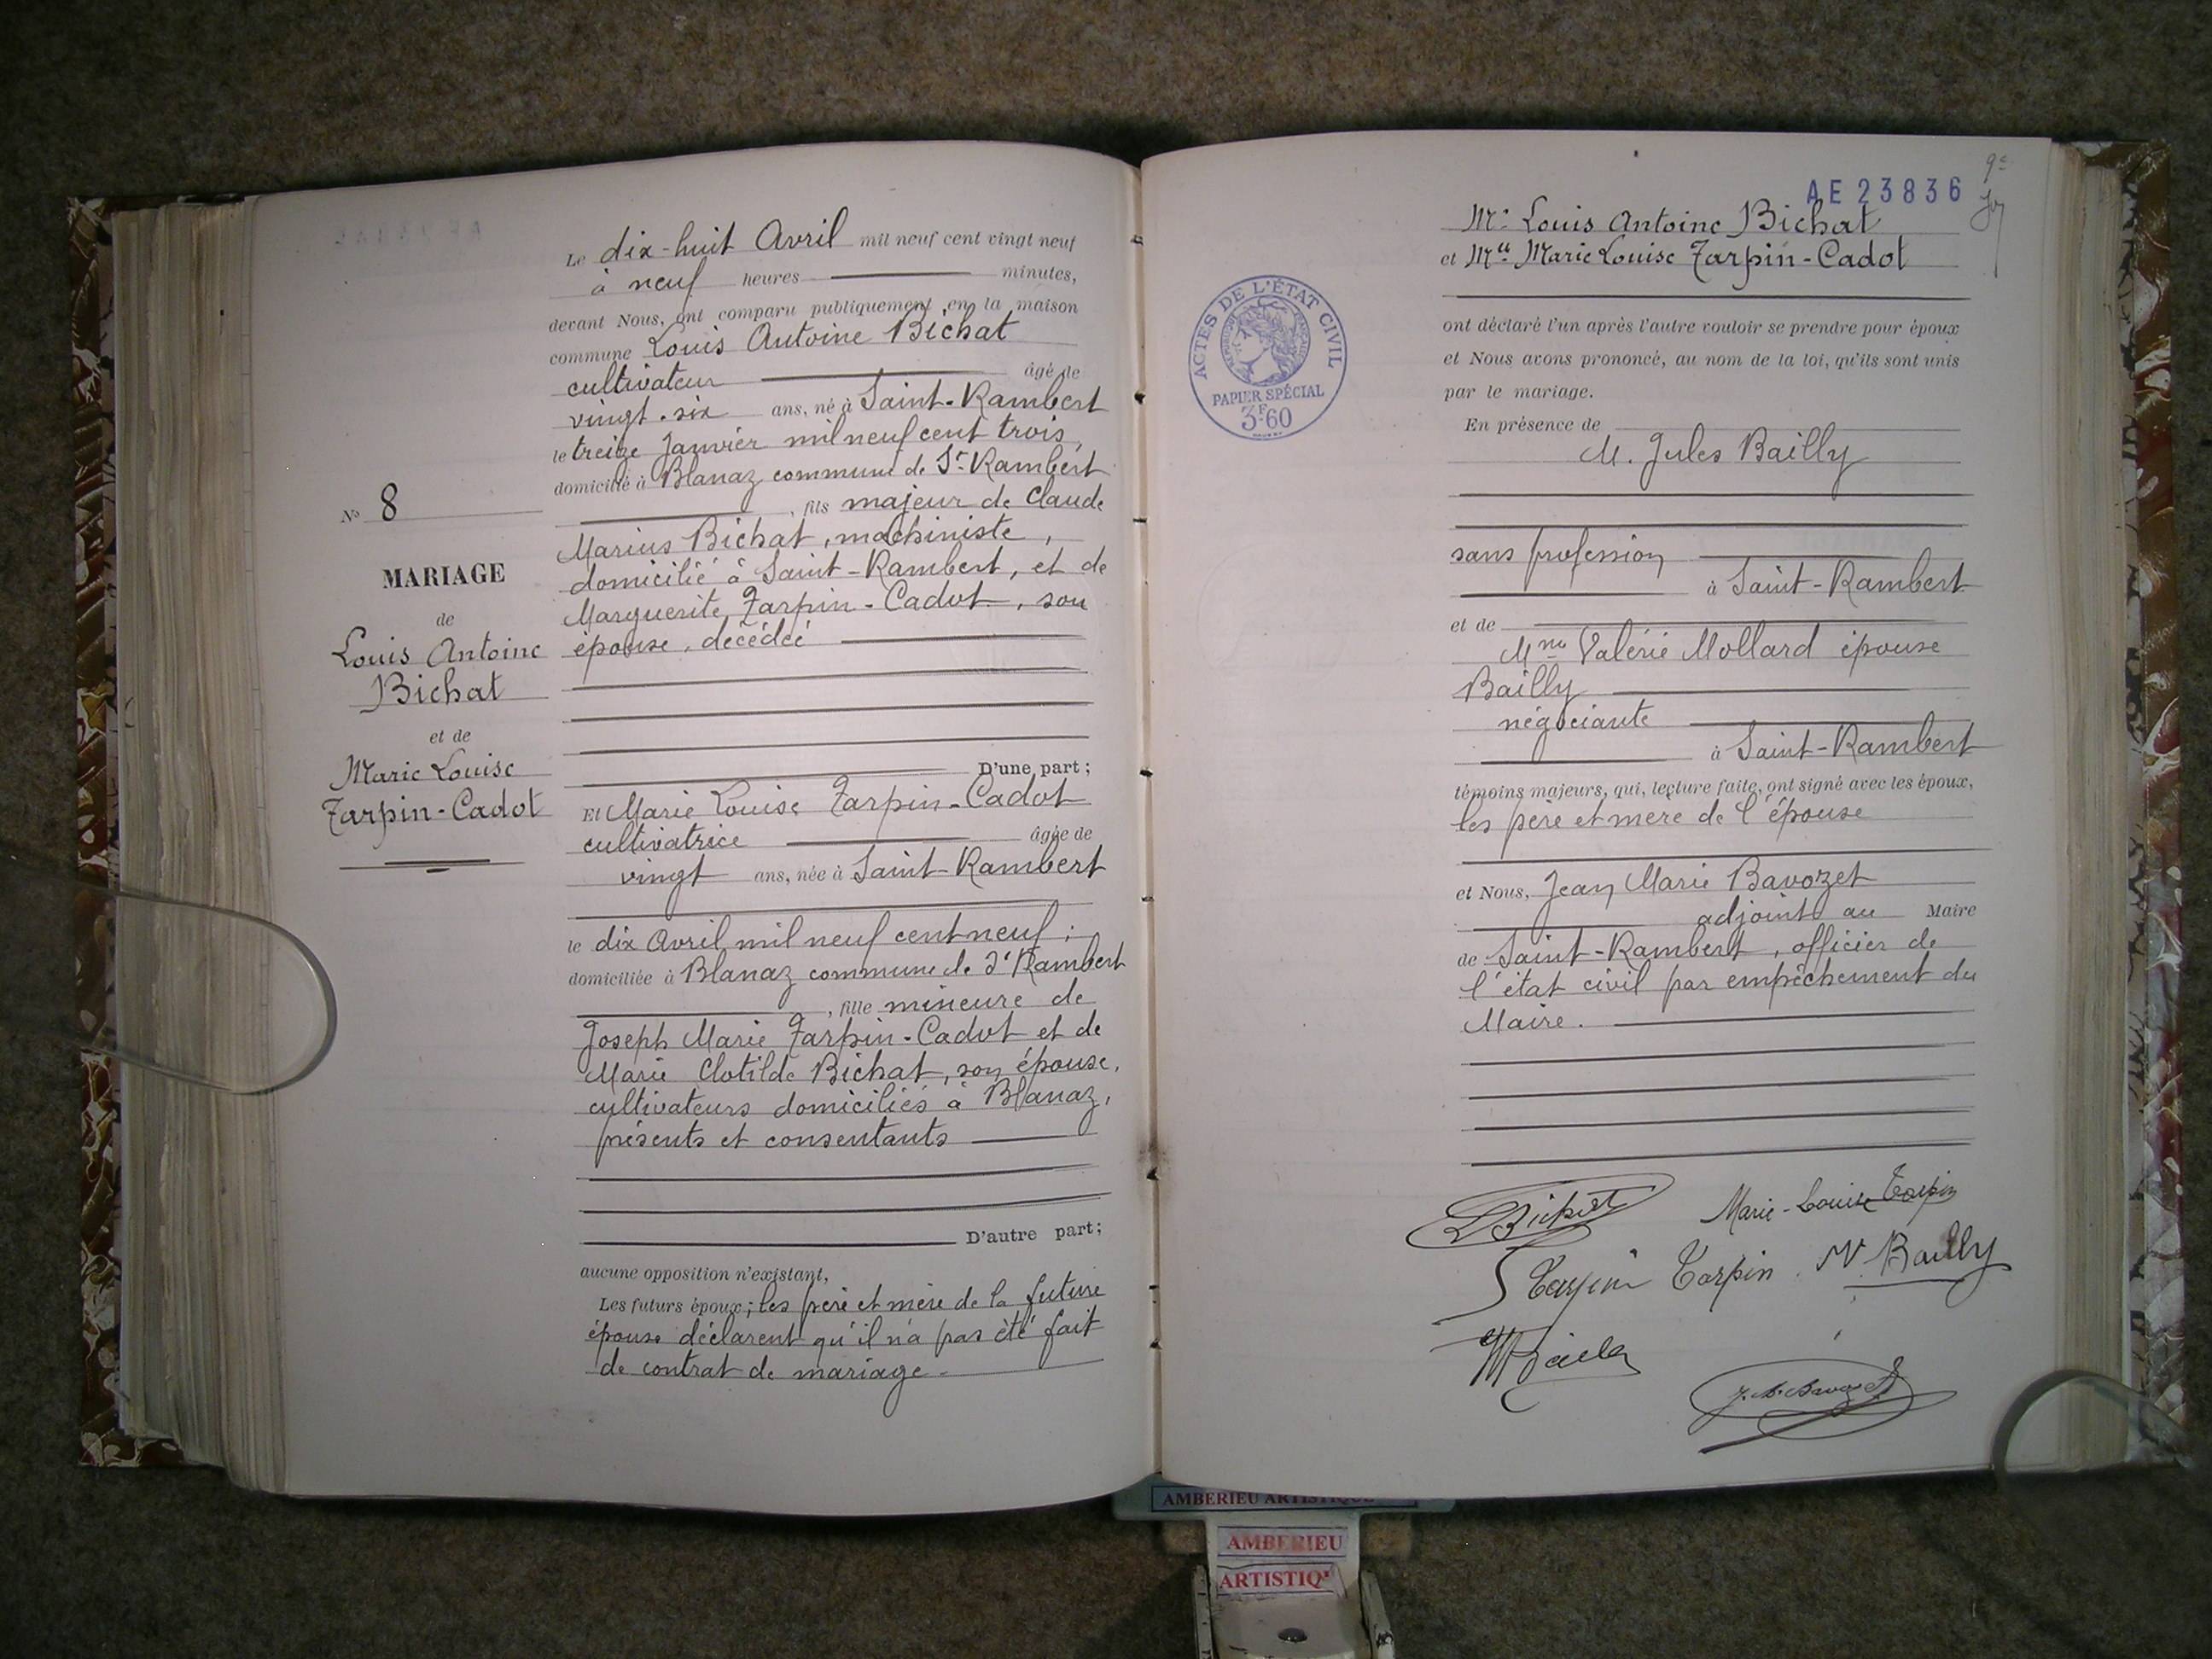 N° 8
MARIAGE
de
Louis Antoine
Bichat
et de
Marie Louise
Tarpin-Cadot
Le dix-huit Avril mil neuf cent vingt neuf
à neuf heures minutes,
devant Nous, ont comparu publiquement en la maison
commune Louis Antoine Bichat
cultivateur âgé de
vingt-six ans, né à Saint-Rambert
le treize Janvier mil neuf cent trois,
domicilié à Blanaz commune de St Rambert
, fils majeur de Claude
Marius Bichat, machiniste,
domicilié à Saint-Rambert, et de
Marguerite Tarpin-Cadot, son
épouse, décédée
D'une part;
Et Marie Louise Tarpin-Cadot
cultivatrice âgée de
vingt ans, née à Saint-Rambert
le dix Avril mil neuf cent neuf;
domiciliée à Blanaz commune de St Rambert
, fille mineure de
Joseph Marie Tarpin-Cadot et de
Marie Clotilde Bichat, son épouse,
cultivateurs domiciliés à Blanaz,
présents et consentants
D'autre part;
aucune opposition n'existant,
Les futurs époux; les père et mère de la future
épouse déclarent qu'il n'a pas été fait
de contrat de mariage.
9e
AE 23836
Mr Louis Antoine Bichat
et Mlle Marie Louise Tarpin-Cadot
ACTES DE L'ÉTAT CIVIL
RÉPUBLIQUE FRANÇAISE
PAPIER SPÉCIAL
3F60
ont déclaré l'un après l'autre vouloir se prendre pour époux
et Nous avons prononcé, au nom de la loi, qu'ils sont unis
par le mariage.
En présence de
M. Jules Bailly
sans profession
à Saint-Rambert
et de
Mme Valérie Mollard épouse
Bailly
négociante
à Saint-Rambert
témoins majeurs, qui, lecture faite, ont signé avec les époux,
les père et mère de l'épouse
et Nous, Jean Marie Bavozet
adjoint au Maire
de Saint-Rambert, officier de
l'état civil par empêchement du
Maire.
L Bichat Marie-Louise Tarpin
Tarpin Tarpin V Bailly
J. M. Bavozet
AMBERIEU ARTISTIQUE
AMBERIEU
ARTISTIQ